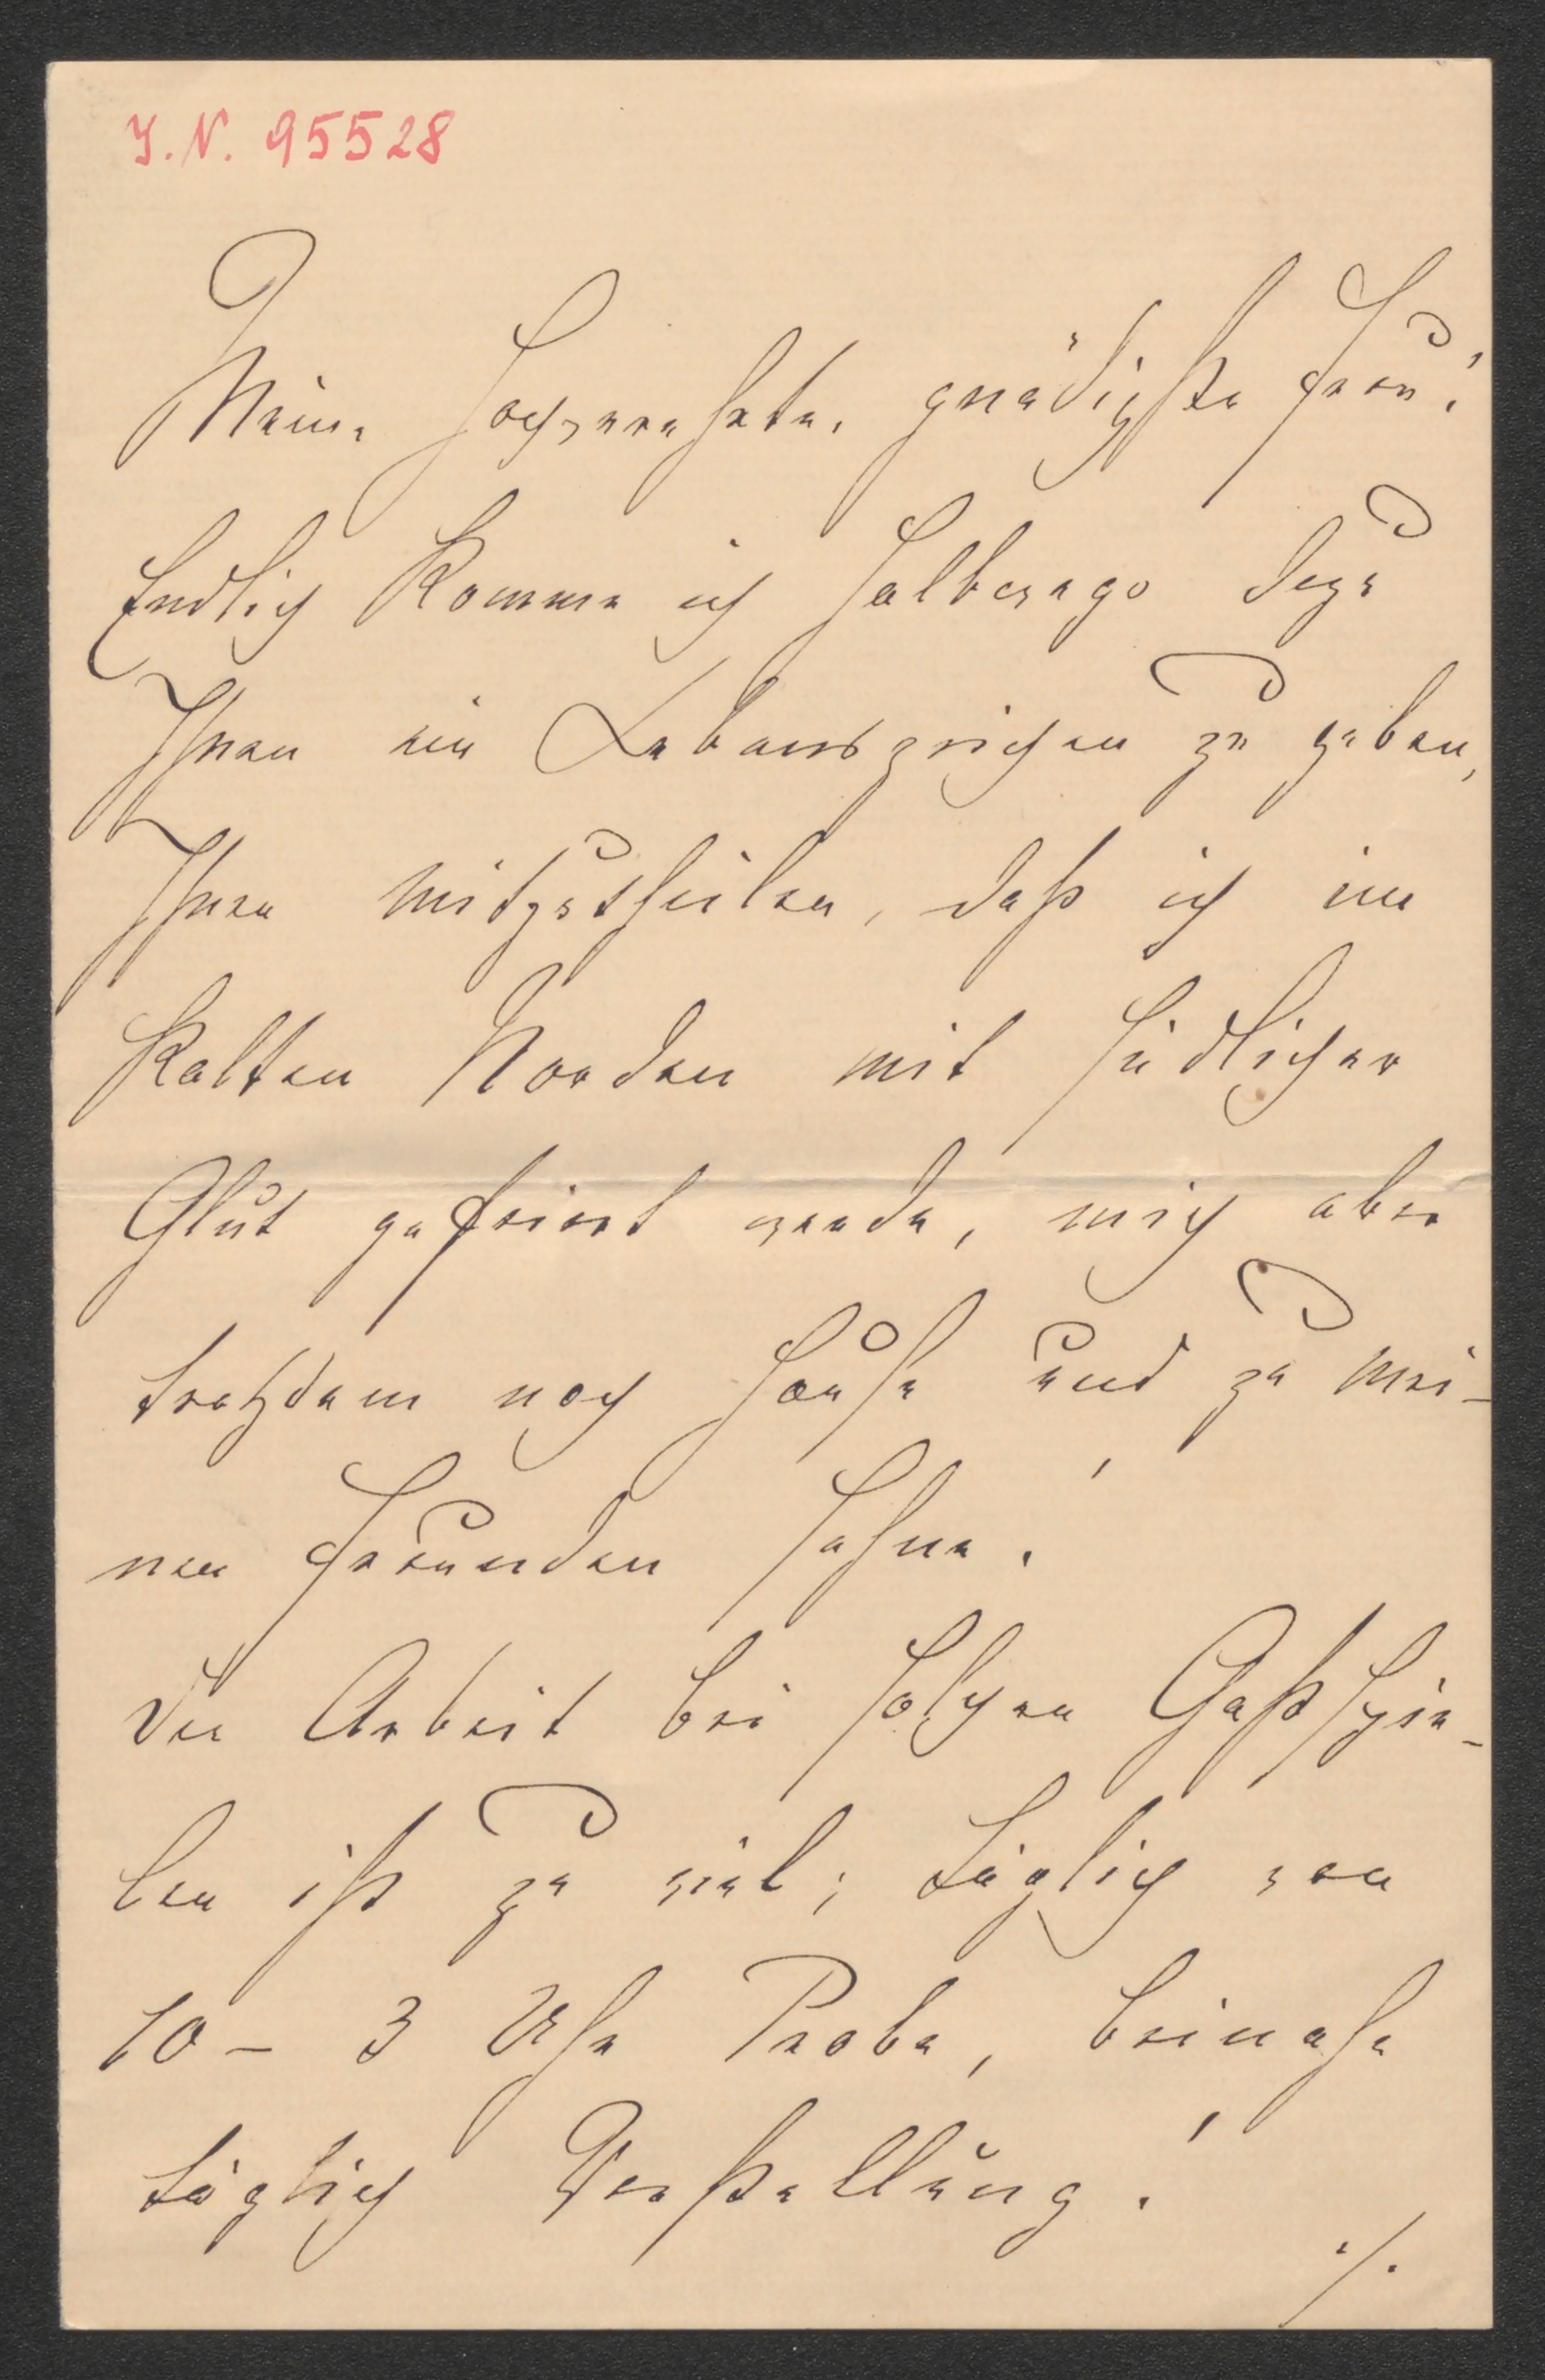 I. N. 95528
Meine hochverehrte, gnädigste Frau!
Endlich komme ich halbwegs dazu
Ihnen ein Lebenszeichen zu geben,
Ihnen mitzutheilen, daß ich im
kalten Norden mit südlicher
Glut gefeiert werde, mich aber
trotzdem nach Hause und zu mei-
nen Freunden sehne!
Die Arbeit bei solchen Gastspie-
len ist zu viel; täglich von
10 - 3 Uhr Probe, beinahe
täglich Vorstellung!
./.